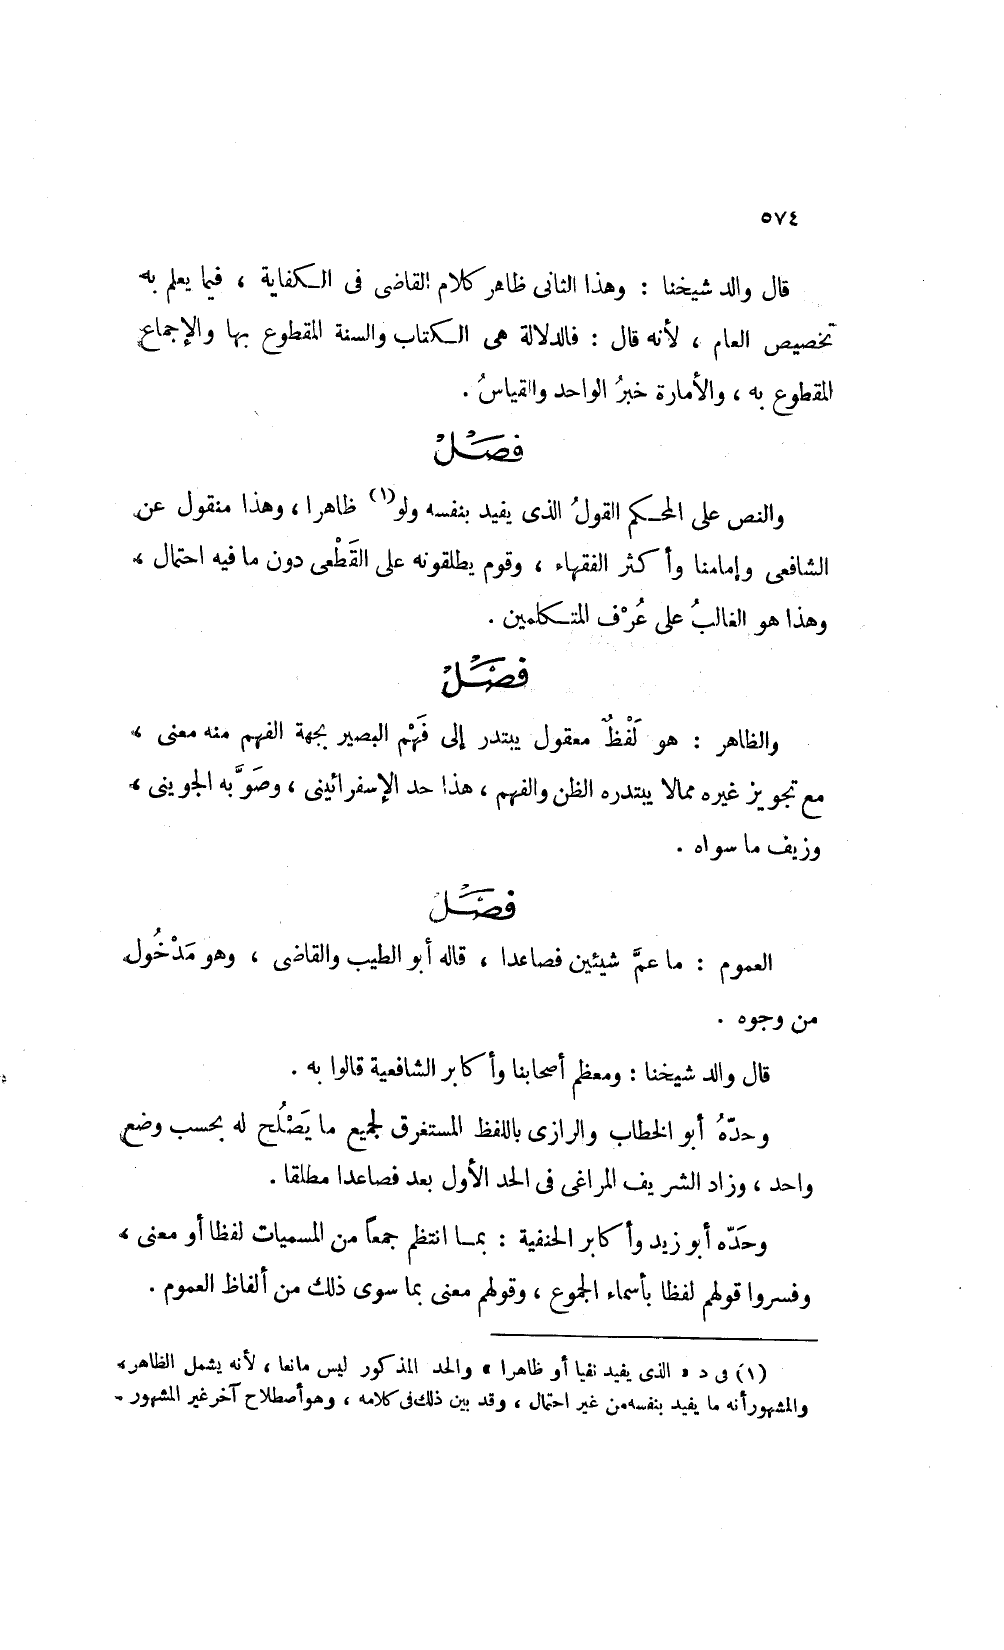 ٥٧٤
قال والد شيخنا : وهذا الثانى ظاهر كلام القاضى فى الكفاية ، فيما يعلم به
تخصيص العام ، لأنه قال : فالدلالة هى الكتاب والسنة المقطوع بها والإجماع
المقطوع به ، والأمارة خبرُ الواحد والقياسُ .
فصَلْ
والنص على المحكم القولُ الذى يفيد بنفسه ولو(١) ظاهرا ، وهذا منقول عن
الشافعى وإمامنا وأكثر الفقهاء ، وقوم يطلقونه على القَطْعى دون ما فيه احتمال ،
وهذا هو الغالبُ على عُرْف المتكلمين .
فصَلْ
والظاهر : هو لَفْظٌ معقول يبتدر إلى فَهْم البصير بجهة الفهم منه معنى ،
مع تجويز غيره ممالا يبتدره الظن والفهم ، هذا حد الإسفرائينى ، وصَوَّبه الجوينى ،
وزيف ما سواه .
فصَلْ
العموم : ما عمَّ شيئين فصاعدا ، قاله أبو الطيب والقاضى ، وهو مَدْخُول
من وجوه .
قال والد شيخنا : ومعظم أصحابنا وأكابر الشافعية قالوا به .
وحدّهُ أبو الخطاب والرازى باللفظ المستغرق لجميع ما يَصْلُح له بحسب وضع
واحد ، وزاد الشريف المراغى فى الحد الأول بعد فصاعدا مطلقا .
وحَدّه أبو زيد وأكابر الحنفية : بما انتظم جمعاً من المسميات لفظا أو معنى ،
وفسروا قولهم لفظا بأسماء الجموع ، وقولهم معنى بما سوى ذلك من ألفاظ العموم .
(١) فى د « الذى يفيد نفيا أو ظاهرا » والحد المذكور ليس مانعا ، لأنه يشمل الظاهر،
والمشهور أنه ما يفيد بنفسه من غير احتمال ، وقد بين ذلك فى كلامه ، وهو أصطلاح آخر غير المشهور .